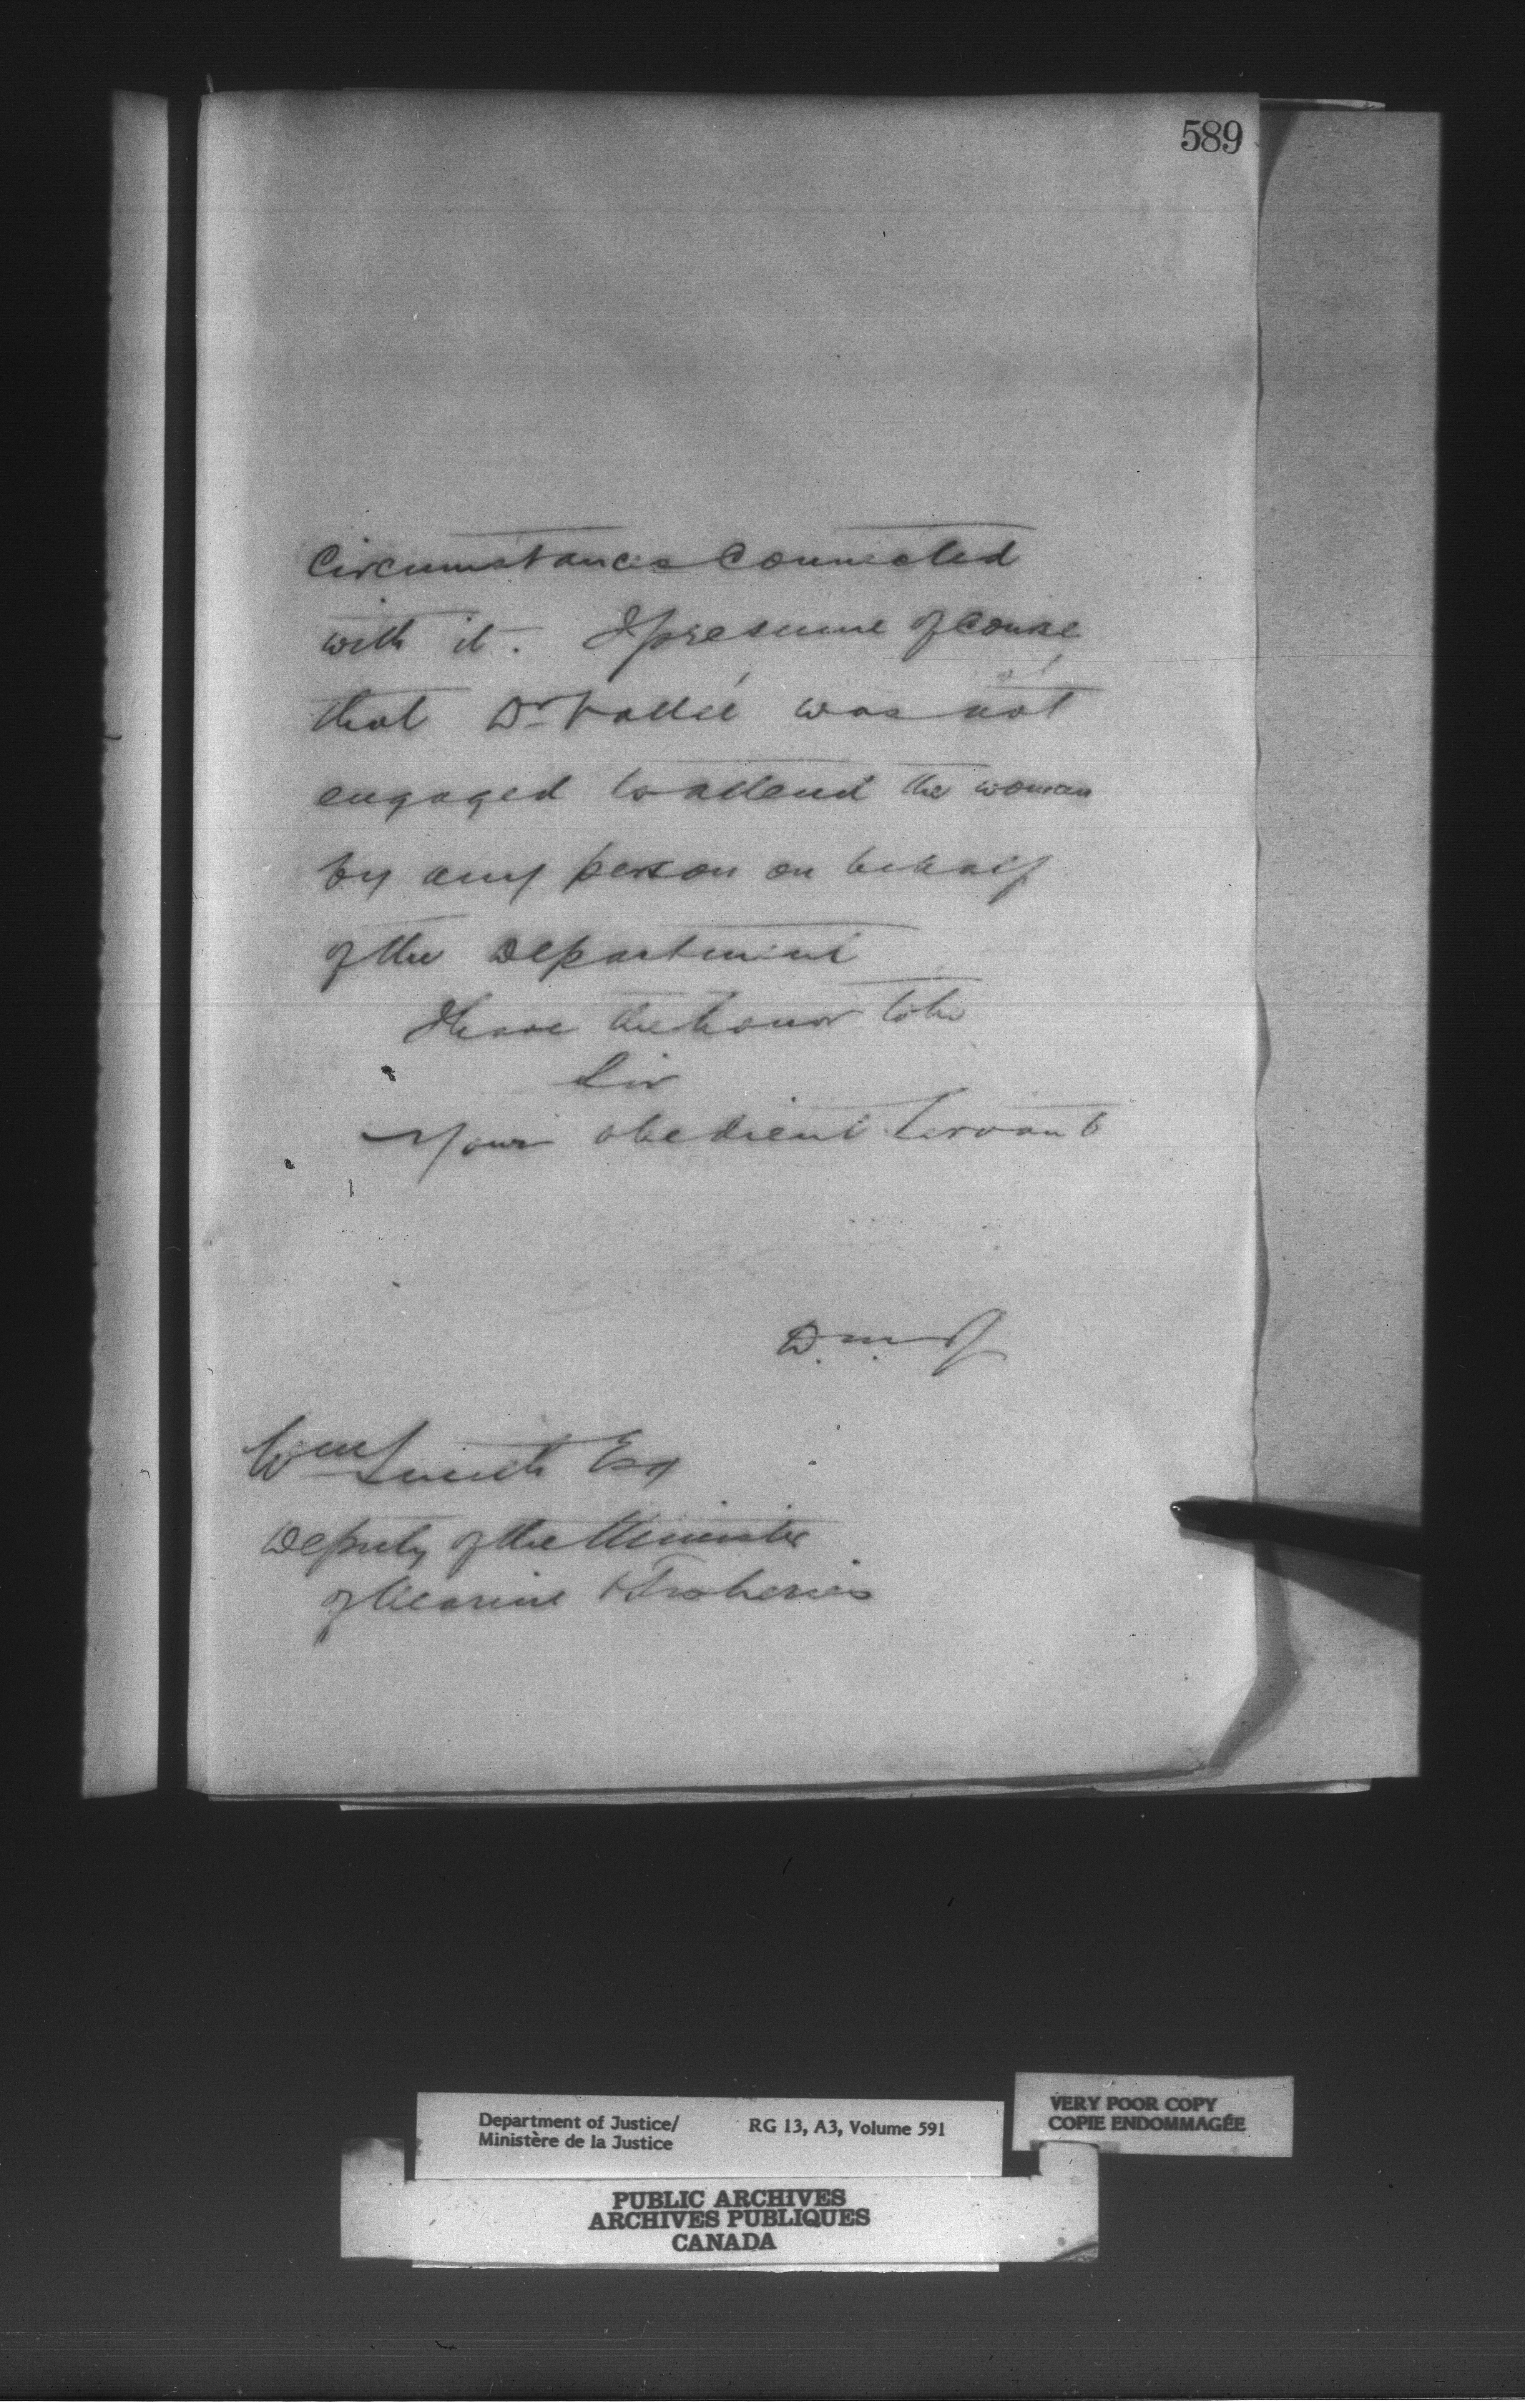 589
Circumstances Connected
with it. I presume of Course
that Dr Vallée was not
engaged to attend the woman
by any person on behalf
of the Department
I have the honor to be
Sir
Your obedient Servant
D.M.J
Wm Smith Esq
Deputy of the Minister
of Marine & Fisheries
Department of Justice/ RG 13, A3, Volume 591
Ministère de la Justice
VERY POOR COPY
COPIE ENDOMMAGÉE
PUBLIC ARCHIVES
ARCHIVES PUBLIQUES
CANADA